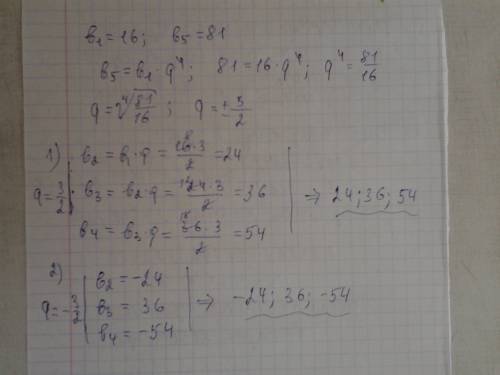 в₁ = 16; в₅ = 81
в₅ = в₁ · q⁴; 81 = 16 · q⁴; q⁴ = 81/16
q = ⁴√(81/16); q = ± 3/2
1)
q = 3/2
в₂ = в₁ · q = 16·3/2 = 24
в₃ = в₂ · q = 24·3/2 = 36
в₄ = в₃ · q = 36·3/2 = 54
⇒ 24; 36; 54
2)
q = -3/2
в₂ = -24
в₃ = 36
в₄ = -54
⇒ -24; 36; -54